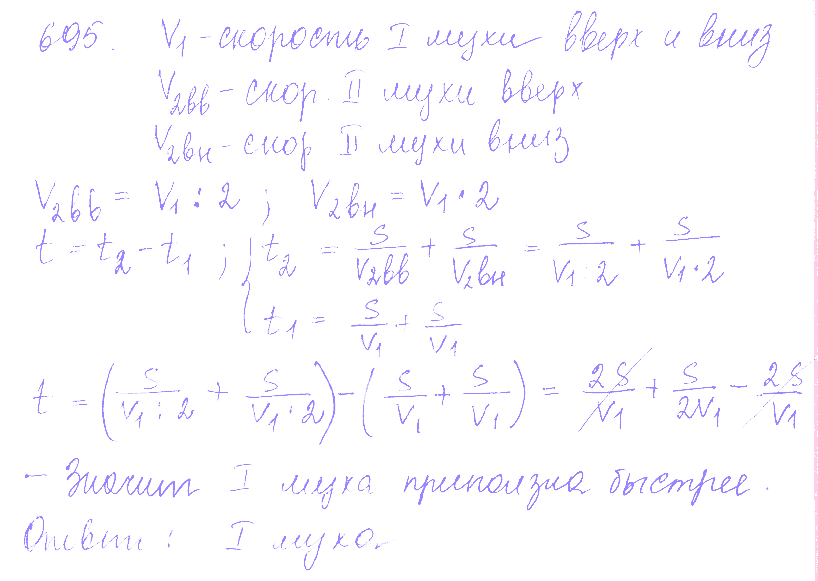 695. V₁ - скорость I мухи вверх и вниз
V₂вв - скор. II мухи вверх
V₂вн - скор II мухи вниз
V₂вв = V₁ : 2 ; V₂вн = V₁ · 2
t = t₂ - t₁ ; { t₂ = S/V₂вв + S/V₂вн = S/(V₁ : 2) + S/(V₁ · 2)
t₁ = S/V₁ + S/V₁
t = (S/(V₁ : 2) + S/(V₁ · 2)) - (S/V₁ + S/V₁) = 2S/V₁ + S/2V₁ - 2S/V₁
- Значит I муха приползла быстрее.
Ответ : I муха.